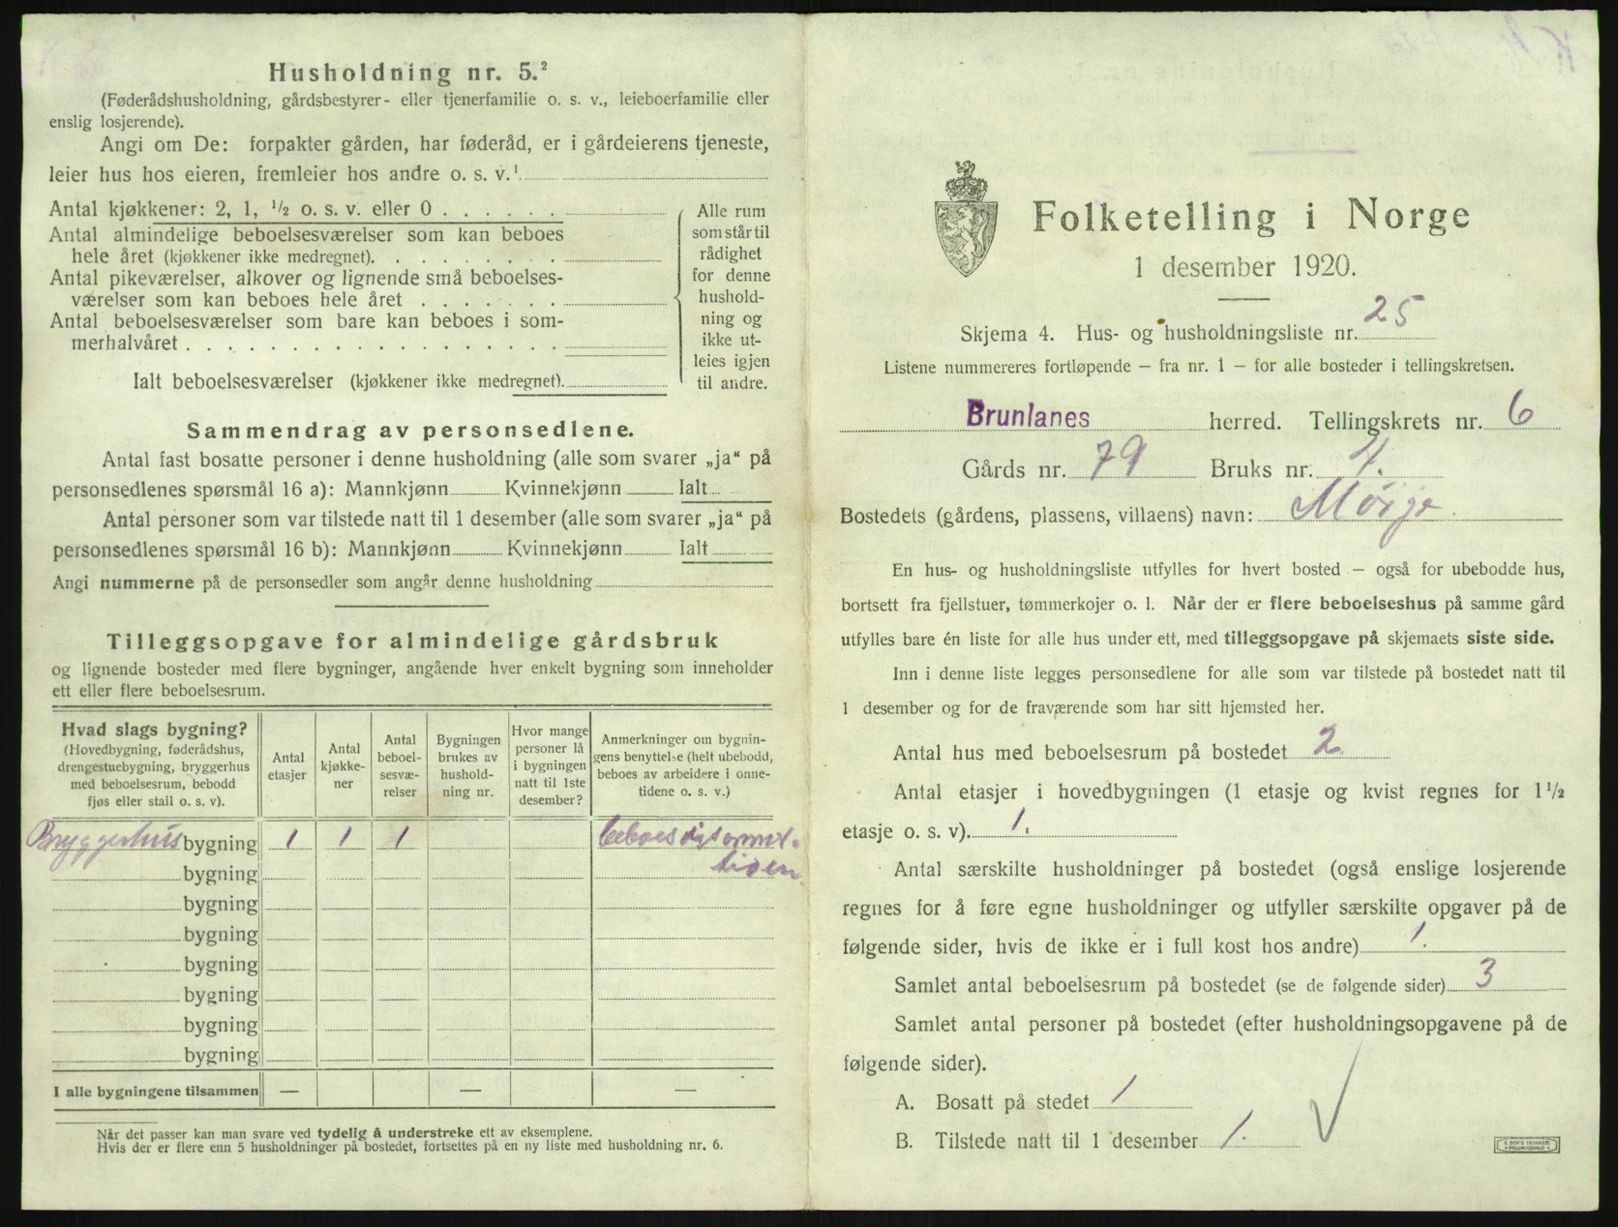 Husholdning nr. 5.²
(Føderådshusholdning, gårdsbestyrer- eller tjenerfamilie o. s. v., leieboerfamilie eller
enslig losjerende).
Angi om De: forpakter gården, har føderåd, er i gårdeierens tjeneste,
leier hus hos eieren, fremleier hos andre o. s. v.¹
Antal kjøkkener: 2, 1, ½ o. s. v. eller 0 . . . . . .
Antal almindelige beboelsesværelser som kan beboes
hele året (kjøkkener ikke medregnet). . . . . . . .
Antal pikeværelser, alkover og lignende små beboelses-
værelser som kan beboes hele året . . . . . . .
Antal beboelsesværelser som bare kan beboes i som-
merhalvåret . . . . . . . . . . . . . . . . . .
Ialt beboelsesværelser (kjøkkener ikke medregnet).
Alle rum
som står til
rådighet
for denne
hushold-
ning og
ikke ut-
leies igjen
til andre.
Sammendrag av personsedlene.
Antal fast bosatte personer i denne husholdning (alle som svarer „ja“ på
personsedlenes spørsmål 16 a): Mannkjønn Kvinnekjønn Ialt
Antal personer som var tilstede natt til 1 desember (alle som svarer „ja“ på
personsedlenes spørsmål 16 b): Mannkjønn Kvinnekjønn Ialt
Angi nummerne på de personsedler som angår denne husholdning
Tilleggsopgave for almindelige gårdsbruk
og lignende bosteder med flere bygninger, angående hver enkelt bygning som inneholder
ett eller flere beboelsesrum.
Hvad slags bygning?
(Hovedbygning, føderådshus,
drengestuebygning, bryggerhus
med beboelsesrum, bebodd
fjøs eller stall o. s. v).
Antal
etasjer
Antal
kjøkke-
ner
Antal
beboel-
sesvæ-
relser
Bygningen
brukes av
hushold-
ning nr.
Hvor mange
personer lå
i bygningen
natt til 1ste
desember?
Anmerkninger om bygnin-
gens benyttelse (helt ubebodd,
beboes av arbeidere i onne-
tidene o. s. v.)
Bryggerhus bygning 1 1 1 beboes
bygning
bygning
bygning
bygning
bygning
bygning
bygning
I alle bygningene tilsammen — — —
Når det passer kan man svare ved tydelig å understreke ett av eksemplene.
Hvis der er flere enn 5 husholdninger på bostedet, fortsettes på en ny liste med husholdning nr. 6.
Folketelling i Norge
1 desember 1920.
Skjema 4. Hus- og husholdningsliste nr. 25
Listene nummereres fortløpende — fra nr. 1 — for alle bosteder i tellingskretsen.
Brunlanes herred. Tellingskrets nr. 6
Gårds nr. 79 Bruks nr. 4.
Bostedets (gårdens, plassens, villaens) navn: Mørje
En hus- og husholdningsliste utfylles for hvert bosted — også for ubebodde hus,
bortsett fra fjellstuer, tømmerkojer o. l. Når der er flere beboelseshus på samme gård
utfylles bare én liste for alle hus under ett, med tilleggsopgave på skjemaets siste side.
Inn i denne liste legges personsedlene for alle som var tilstede på bostedet natt til
1 desember og for de fraværende som har sitt hjemsted her.
Antal hus med beboelsesrum på bostedet 2
Antal etasjer i hovedbygningen (1 etasje og kvist regnes for 1½
etasje o. s. v). 1.
Antal særskilte husholdninger på bostedet (også enslige losjerende
regnes for å føre egne husholdninger og utfyller særskilte opgaver på de
følgende sider, hvis de ikke er i full kost hos andre) 1.
Samlet antal beboelsesrum på bostedet (se de følgende sider) 3
Samlet antal personer på bostedet (efter husholdningsopgavene på de
følgende sider).
A. Bosatt på stedet 1
B. Tilstede natt til 1 desember 1.